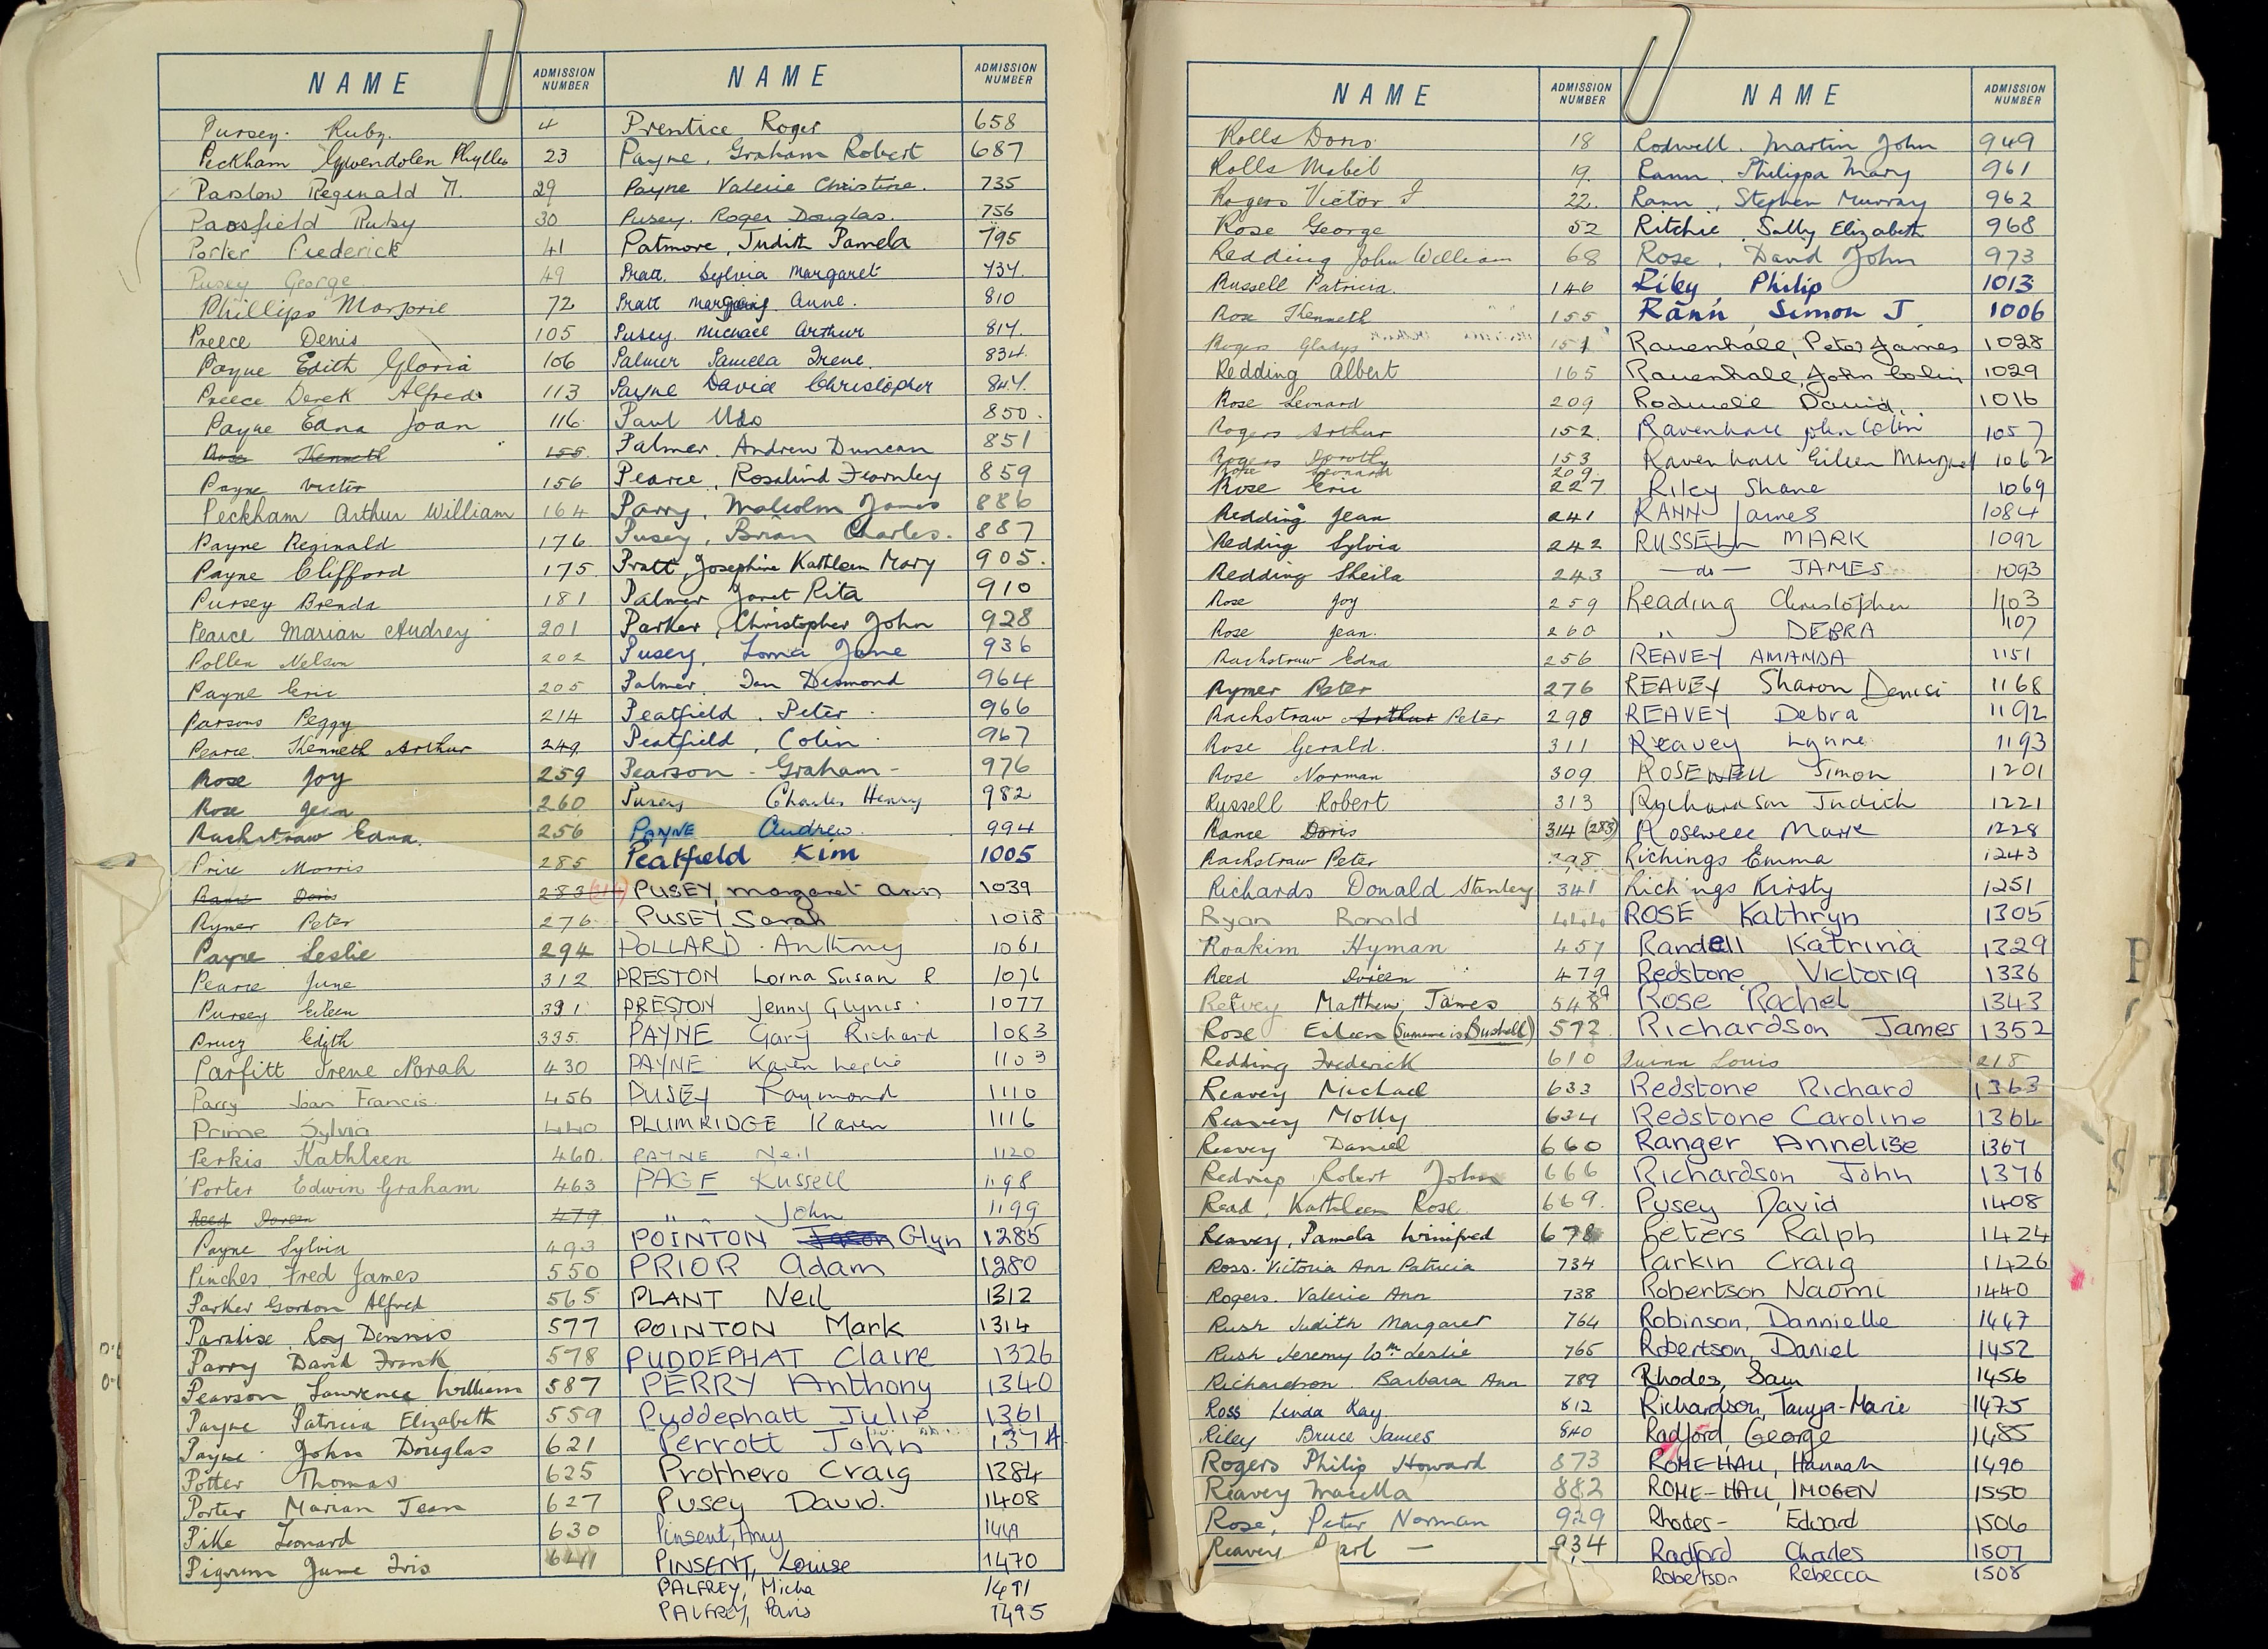 NAME ADMISSION NUMBER NAME ADMISSION NUMBER
Pursey. Ruby. 4
Peckham Gwendolen Phyllis 23
Parslow Reginald 29
Passfield Ruby 30
Porter Frederick 41
Pusey George 49
Phillips Marjorie 72
Preece Denis 105
Payne Edith Gloria 106
Preece Derek Alfred 113
Payne Edna Joan 116
Rose Kenneth 155
Payne Victor 156
Peckham Arthur William 164
Payne Reginald 176
Payne Clifford 175
Pursey Brenda 181
Pearce Marian Audrey 201
Pollen Nelson 202
Payne Eric 205
Parsons Peggy 214
Pearce. Kenneth Arthur 249
Rose Joy 259
Rose Jean 260
Rackstraw Edna. 256
Price Morris 285
Rance Doris 283 (314)
Rymer Peter 276
Payne Leslie 294
Pearce June 312
Pursey Eileen 331
Edith 335.
Parfitt Irene Norah 430
Parry Joan Francis. 456
Prime Sylvia 440
Perkis Kathleen 460.
Porter Edwin Graham 463
Reed Doreen 479
Payne Sylvia 493
Pinches Fred James 550
Parker Gordon Alfred 565
Roy Dennis 577
Parry David Frank 578
Pearson, Lawrence William 587
Payne Patricia Elizabeth 559
Payne John Douglas 621
Potter Thomas 625
Porter Marian Jean 627
Pike Leonard 630
Pigrum June Iris
Prentice Roger 658
Payne, Graham Robert 687
Payne Valerie Christine. 735
Pusey. Roger Douglas. 756
Patmore, Judith Pamela 795
Pratt. Sylvia Margaret 737.
Pratt Anne. 810
Pusey. Michael Arthur 817.
Palmer Pamela Irene. 834.
Payne David Christopher 847.
Paul 850.
Palmer. Andrew Duncan 851
Pearce, Rosalind Fearnley 859
Parry, Malcolm James 886
Pusey, Brian Charles. 887
Pratt, Josephine Kathleen Mary 905.
Palmer Janet Rita 910
Parker, Christopher John 928
Pusey, Lorna Jane 936
Palmer, Ian Desmond 964
Peatfield, Peter 966
Peatfield, Colin 967
Pearson - Graham - 976
Pusey Charles Henry 982
PAYNE Andrew. 994
Peatfield Kim 1005
PUSEY, Margaret Ann 1039
PUSEY, Sarah 1018
POLLARD. Anthony 1061
PRESTON Lorna Susan R 1076
PRESTON Jenny Glynis. 1077
PAYNE Gary Richard 1083
PAYNE Karen Leslie 1103
PUSEY Raymond 1110
PLUMRIDGE Karen 1116
PAYNE Neil 1120
PAGE Russell 1198
" " John 1199
POINTON Jason Glyn 1285
PRIOR Adam 1280
PLANT Neil 1312
POINTON Mark 1314
PUDDEPHAT Claire 1326
PERRY Anthony 1340
Puddephatt Julie 1361
Perrott John 1374
Prothero Craig 1384
Pusey David. 1408
Pinsent, Amy 1469
PINSENT, Louise 1470
PALFREY, Micha 1491
PALFREY, Paris 1495
NAME ADMISSION NUMBER NAME ADMISSION NUMBER
Rolls Doris 18
Rolls Mabel 19.
Rogers Victor J 22.
Rose George 52
Redding John William 68
Russell Patricia. 146
Rose Kenneth 155
Rogers Gladys 151
Redding Albert 165
Rose Leonard 209
Rogers Arthur 152.
Rogers Dorothy 153
Rose Leonard 209
Rose Eric 227
Redding Jean 241
Redding Sylvia 242
Redding Sheila 243
Rose Joy 259
Rose Jean. 260
Rackstraw Edna 256
Rymer Peter 276
Rackstraw Arthur Peter 298
Rose Gerald. 311
Rose Norman 309
Russell Robert 313
Rance Doris 314 (283)
Rackstraw Peter 298
Richards Donald Stanley 341
Ryan Ronald 444
Roakim Hyman 457
Reed Doreen 479
Reavey Matthew James 548
Rose Eileen (Surname is Bushell) 572.
Redding Frederick 610
Reavey Michael 633
Reavey Molly 634
Reavey Daniel 660
Redrup Robert John 666
Read, Kathleen Rose. 669.
Reavey, Pamela Winifred 678
Ross. Victoria Ann Patricia 734
Rogers. Valerie Ann 738
Rush Judith Margaret 764
Rush Jeremy Wm Leslie 765
Richardson. Barbara Ann 789
Ross Linda Kay. 812
Riley Bruce James 840
Rogers Philip Howard 873
Reavey Marella 882
Rose, Peter Norman 929
Reavey — 934
Rodwell. Martin John 949
Rann, Philippa Mary 961
Rann, Stephen Murray 962
Ritchie Sally Elizabeth 968
Rose, David John 973
Riley Philip 1013
Rann, Simon J. 1006
Ravenhall, Peter James 1028
Ravenhall, John Colin 1029
Rodwell David 1016
Ravenhall John Colin 1057
Ravenhall Eileen Margret 1062
Riley Shane 1069
RANN James 1084
RUSSELL MARK 1092
— do — JAMES 1093
Reading Christopher 1103
" DEBRA 1107
REAVEY AMANDA 1151
REAVEY Sharon Denise 1168
REAVEY Debra 1192
Reavey Lynne 1193
ROSEWELL Simon 1201
Richardson Judith 1221
Rosewell Mark 1228
Richings Emma 1243
Richings Kirsty 1251
ROSE Kathryn 1305
Randell Katrina 1329
Redstone, Victoria 1336
Rose Rachel 1343
Richardson James 1352
Quinn Louis 218
Redstone Richard 1363
Redstone Caroline 1364
Ranger Annelise 1367
Richardson John 1376
Pusey David 1408
Peters Ralph 1424
Parkin Craig 1426
Robertson Naomi 1440
Robinson, Dannielle 1447
Robertson, Daniel 1452
Rhodes, Sam 1456
Richardson, Tanya-Marie 1475
Radford, George 1485
ROME-HALL, Hannah 1490
ROME-HALL, IMOGEN 1550
Rhodes- Edward 1506
Radford Charles 1507
Robertson Rebecca 1508